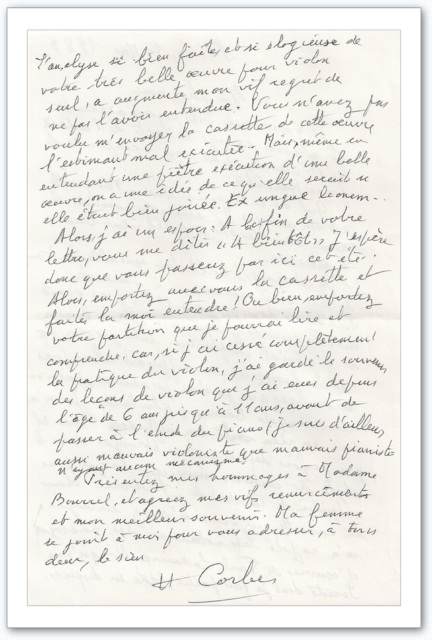 l'analyse si bien faite et si élogieuse de
votre très belle œuvre pour violon
seul, a augmenté mon vif regret de
ne pas l'avoir entendue. Vous n'avez pas
voulu m'envoyer la cassette de cette œuvre
l'estimant mal exécutée. Mais, même en
entendant une piètre exécution d'une belle
œuvre, on a une idée de ce qu'elle serait si
elle était bien jouée. Ex ungue leonem..
Alors, j'ai un espoir: A la fin de votre
lettre, vous me dites "A bientôt" J'espère
donc que vous passerez par ici cet été.
Alors, emportez avec vous la cassette et
faites la moi entendre! Ou bien, emportez
votre partition que je pourrai lire et
comprendre, car, si j'ai cessé complètement
la pratique du violon, j'ai gardé le souvenir
des leçons de violon que j'ai eues depuis
l'âge de 6 ans jusqu'à 11 ans, avant de
passer à l'étude du piano (Je suis d'ailleurs
aussi mauvais violoniste que mauvais pianiste
n'ayant aucun mécanisme)
Présentez mes hommages à Madame
Bourrel, et agréez mes vifs remerciements
et mon meilleur souvenir. Ma femme
se joint à moi pour vous adresser, à tous
deux, le sien
H Corbes